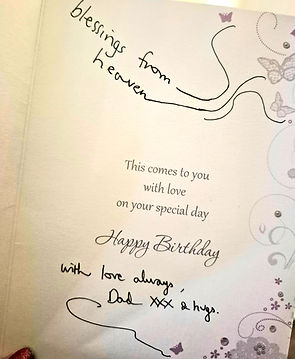 blessings from
heaven
This comes to you
with love
on your special day
Happy Birthday
with love always,
Dad xxx & hugs.